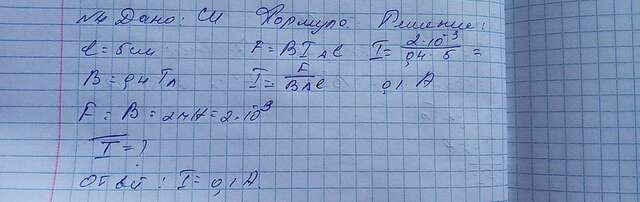 №4 Дано: СИ Формула Решение:
l = 5 см F = BIΔl I = 2·10⁻³ / 0,4 · 5 =
B = 0,4 Тл I = F / BΔl 0,1 A
F = B = 2мН = 2·10⁻³
I = ?
Ответ: I = 0,1 A.